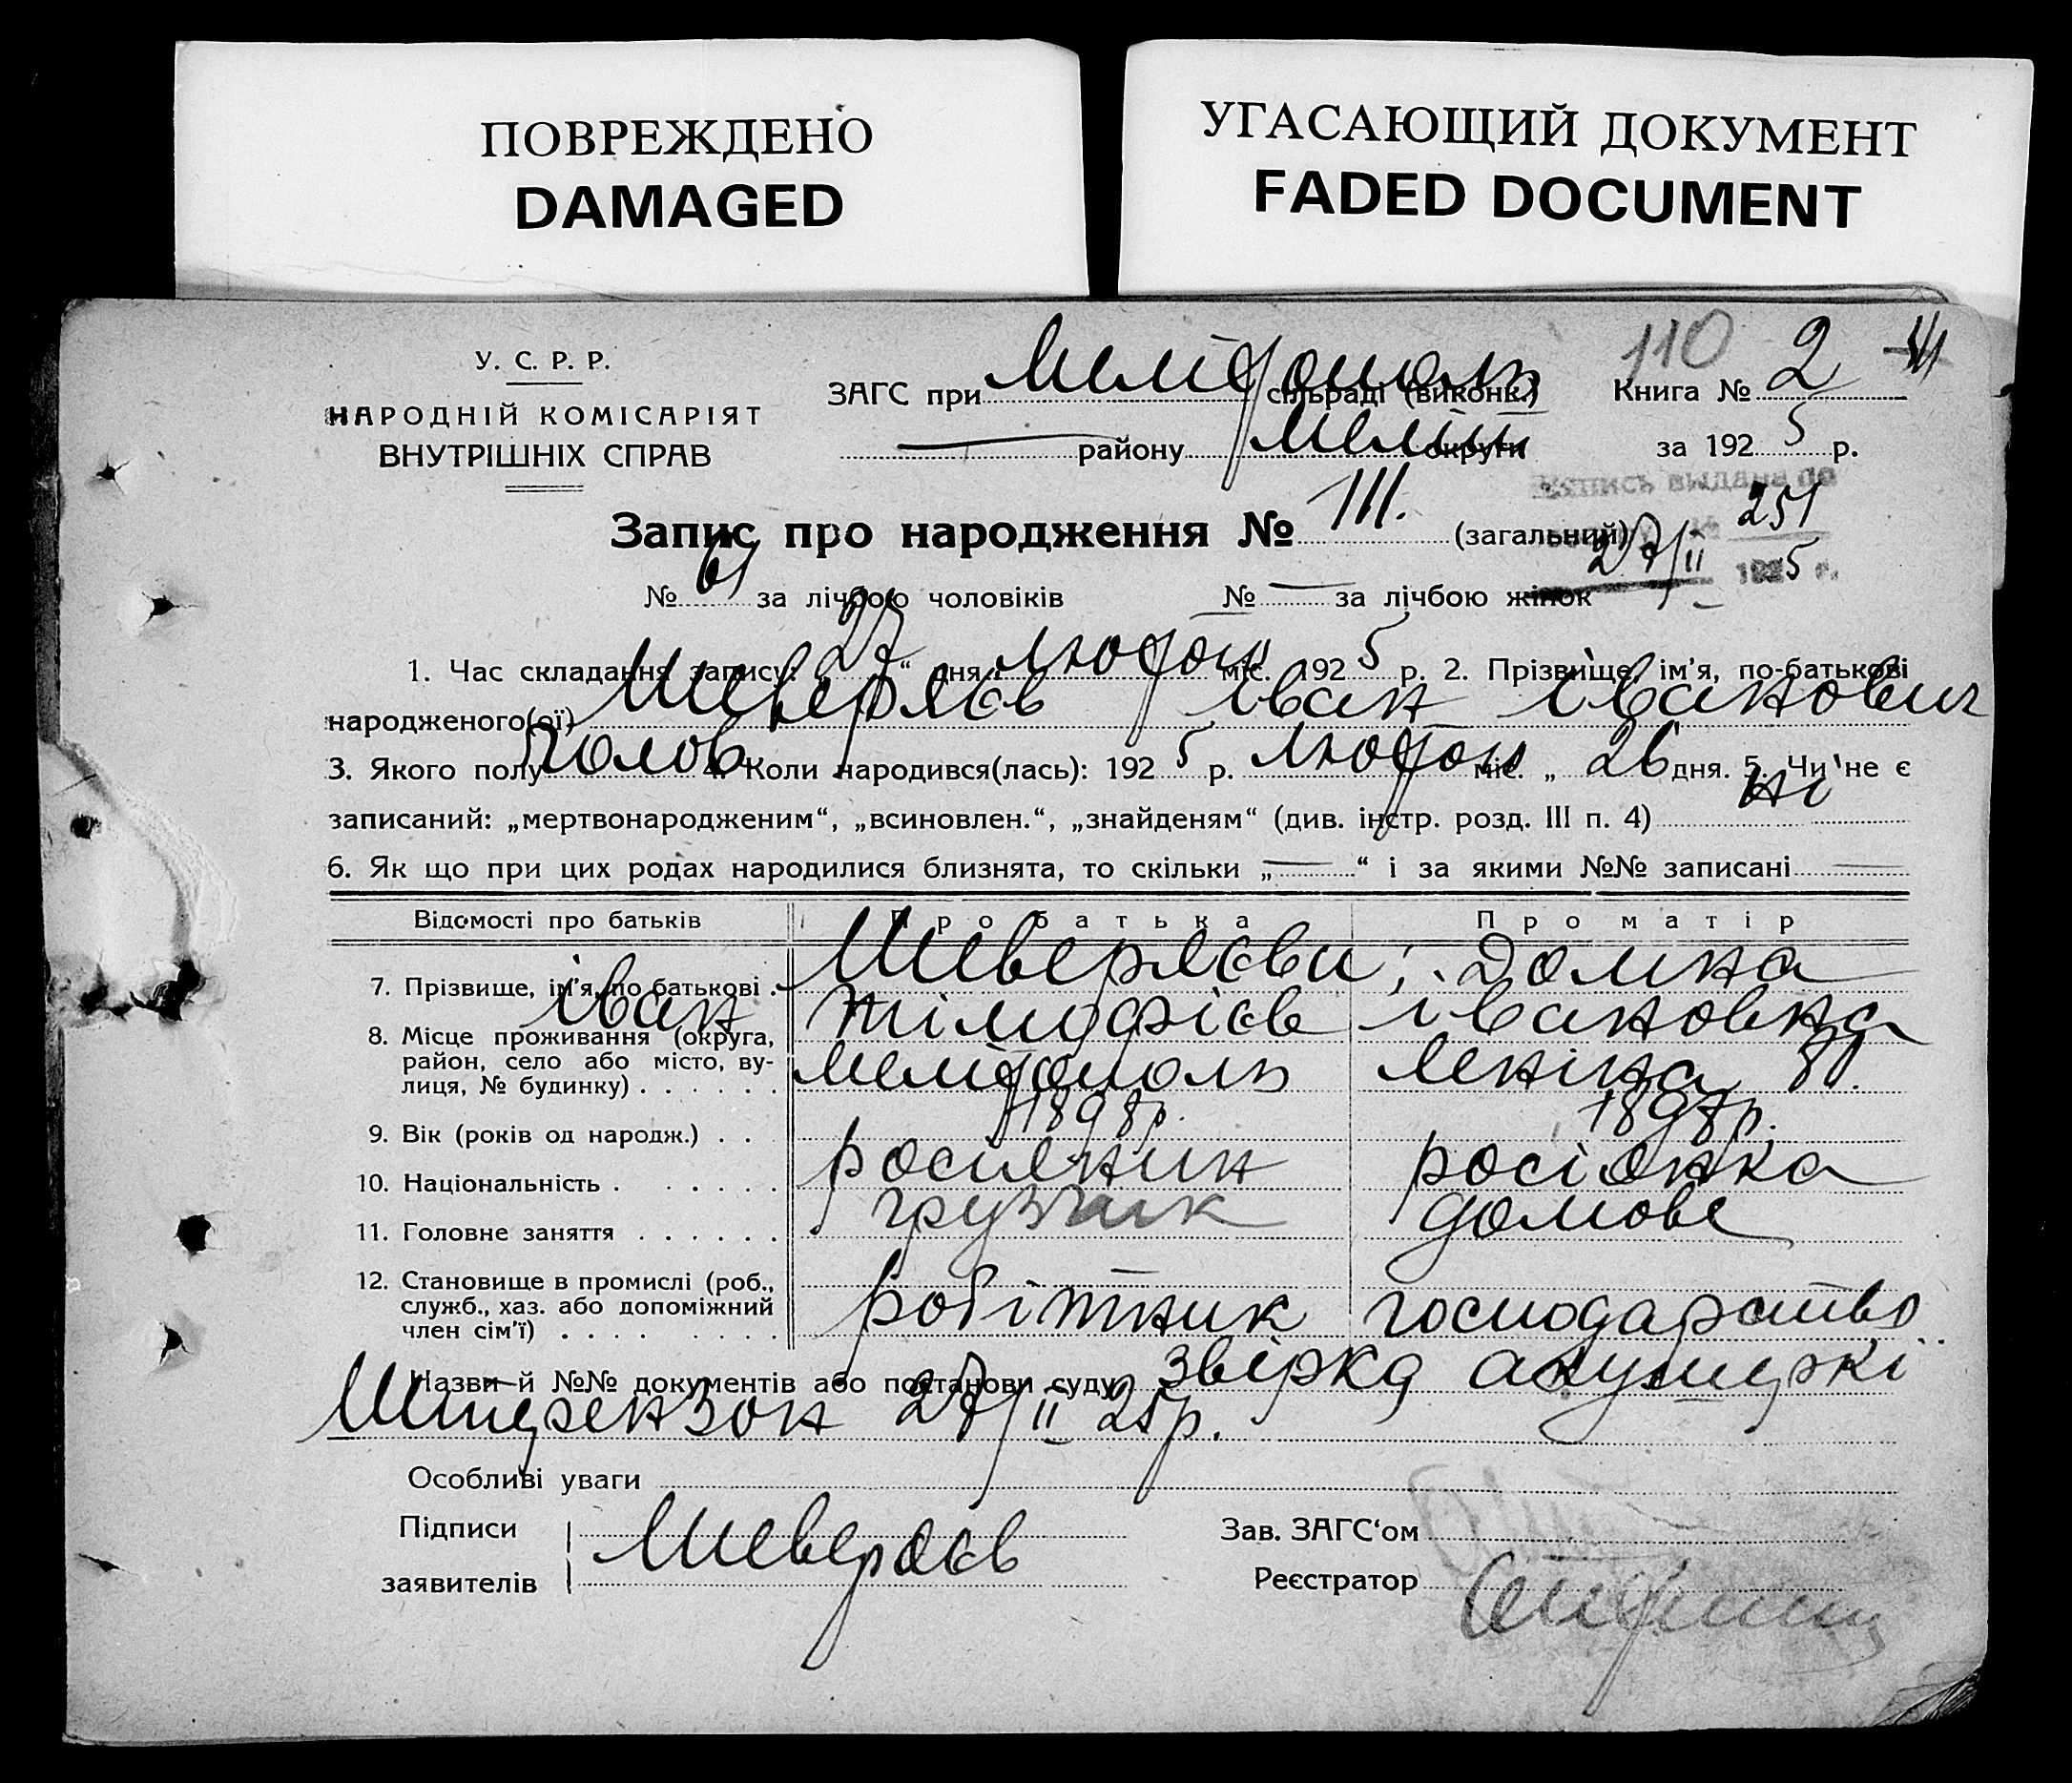 ПОВРЕЖДЕНО
DAMAGED
УГАСАЮЩИЙ ДОКУМЕНТ
FADED DOCUMENT
110
У. С. Р. Р.
НАРОДНІЙ КОМІСАРІЯТ
ВНУТРІШНІХ СПРАВ
ЗАГС при Мелітополь сільраді (виконк.) Книга № 2
району Меліт округи за 1925 р.
выдана по
251
27/II 1925 г.
Запис про народження № 111. (загальний)
№ 61 за лічбою чоловіків № — за лічбою жінок
1. Час складання запису: „27“ дня лютого міс. 1925 р. 2. Прізвище, ім'я, по-батькові
народженого(ої) Шеверяєв Іван Іванович
3. Якого полу чолов 4. Коли народився(лась): 1925 р. лютого міс. „26 дня. 5. Чи не є
записаний: „мертвонародженим“, „всиновлен.“, „знайденям“ (див. інстр. розд. III п. 4) ні
6. Як що при цих родах народилися близнята, то скільки „—“ і за якими №№ записані —
Відомості про батьків Про батька Про матір
7. Прізвище, ім'я, по батькові . Шеверяєви; Домна
Іван Тімофієв Івановна
8. Місце проживання (округа, район, село або місто, вулиця, № будинку) . . . . . . Мелітополь Леніна 81.
9. Вік (років од народж.) . . 1898р. 1897р.
10. Національність . . . . . . росиянин росіянка
11. Головне заняття . . . . . . грузчик домове
12. Становище в промислі (роб., служб., хаз. або допоміжний член сім'ї) . . . . . . . . робітник господарство
Назви й №№ документів або постанови суду звірка акушеркі
27/II 25р.
Особливі уваги
Підписи
заявителів Шеверяєв
Зав. ЗАГС'ом
Реєстратор